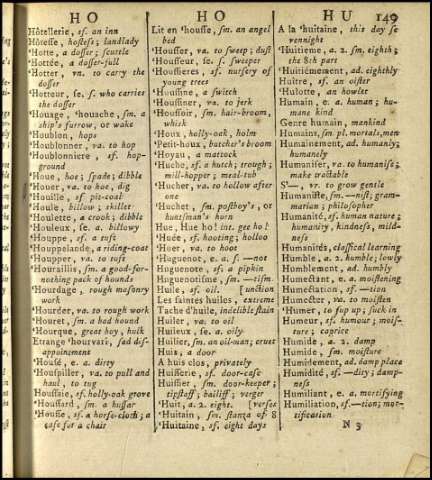 HO
HO
HU
149
Hôtellerie, sf. an inn
Hôtesse, hostess; landlady
'Hotte, a dosser; scuttle
'Hottée, a dosser-full
'Hotter, va. to carry the
dosser
'Hotteur, se. s. who carries
the dosser
'Houage, 'houache, sm. a
ship's furrow, or wake
'Houblon, hops
'Houblonner, va. to hop
'Houblonniere, sf. hop-
ground
'Houe, hoe; spade; dibble
'Houer, va. to hoe, dig
'Houille, sf. pit-coal
'Houle, billow; skillet
'Houlette, a crook; dibble
'Houleux, se. a. billowy
'Houppe, sf. a tuft
'Houppelande, a riding-coat
'Houpper, va. to tuft
'Houraillis, sm. a good-for-
nothing pack of hounds
'Hourdage, rough masonry
work
'Hourder, va. to rough work
'Houret, sm. a bad hound
'Hourque, great hoy, hulk
Etrange 'hourvari, sad dis-
appoinement
'Housé, e. a. dirty
'Houspiller, va. to pull and
haul, to tug
'Houssaie, sf. holly-oak grove
'Houssard, sm. a hussar
'Housse, sf. a horse-cloth; a
case for a chair
Lit en 'housse, sm. an angel
bed
'Housser, va. to sweep; dust
'Housseur, se. s. sweeper
'Houssieres, sf. nursery of
young trees
'Houssine, a switch
'Houssiner, va. to jerk
'Houssoir, sm. hair-broom,
whisk
'Houx, holly-oak, holm
'Petit-houx, butcher's broom
'Hoyau, a mattock
'Huche, sf. a hutch; trough;
mill-hopper; meal-tub
'Hucher, va. to hollow after
one
'Huchet, sm. postboy's, or
huntsman's horn
'Hue, Hue ho! int. gee ho!
'Huée, sf. hooting; holloo
'Huer, va. to hoot
'Huguenot, e. a. s. —not
'Huguenote, sf. a pipkin
'Huguenotisme, sm. —tism
'Huile, sf. oil [unction
Les saintes huiles, extreme
Tache d'huile, indelible stain
'Huiler, va. to oil
'Huileux, se. a. oily
'Huilier, sm. an oil-man; cruet
'Huis, a door
A huis clos, privately
'Huisserie, sf. door-case
'Huissier, sm. door-keeper;
tipstaff; bailiff; verger
'Huit, a. 2. eight. [verses
'Huitain, sm. stanza of 8
'Huitaine, sf. eight days
A la 'huitaine, this day se
vennight
'Huitieme, a. 2. sm. eighth;
the 8th part
'Huitiémement, ad. eighthly
'Huître, sf. an oister
'Hulotte, an howlet
Humain, e. a. human; hu-
mane kind
Genre humain, mankind
Humains, sm. pl. mortals, men
Humainement, ad. humanly;
humanely
Humaniser, va. to humanise;
make tractable
S'—, vr. to grow gentle
Humaniste, sm. —nist; gram-
marian; philosopher
Humanité, sf. human nature;
humanity, kindness, mild-
ness
Humanités, classical learning
Humble, a. 2. humble; lowly
Humblement, ad. humbly
Humectant, e. a. moistening
Humectation, sf. —tion
Humecter, va. to moisten
'Humer, to sup up; suck in
Humeur, sf. humour; mois-
ture; caprice
Humide, a. 2. damp
Humide, sm. moisture
Humidement, ad. damp place
Humidité, sf. —dity; damp-
ness
Humiliant, e. a. mortifying
Humiliation, sf. —tion; mor-
tification
N 3